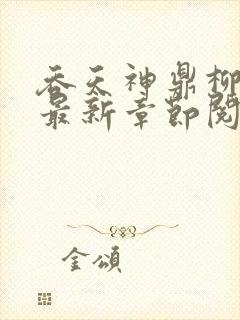 吞天神鼎柳
最新章節閱
金頌